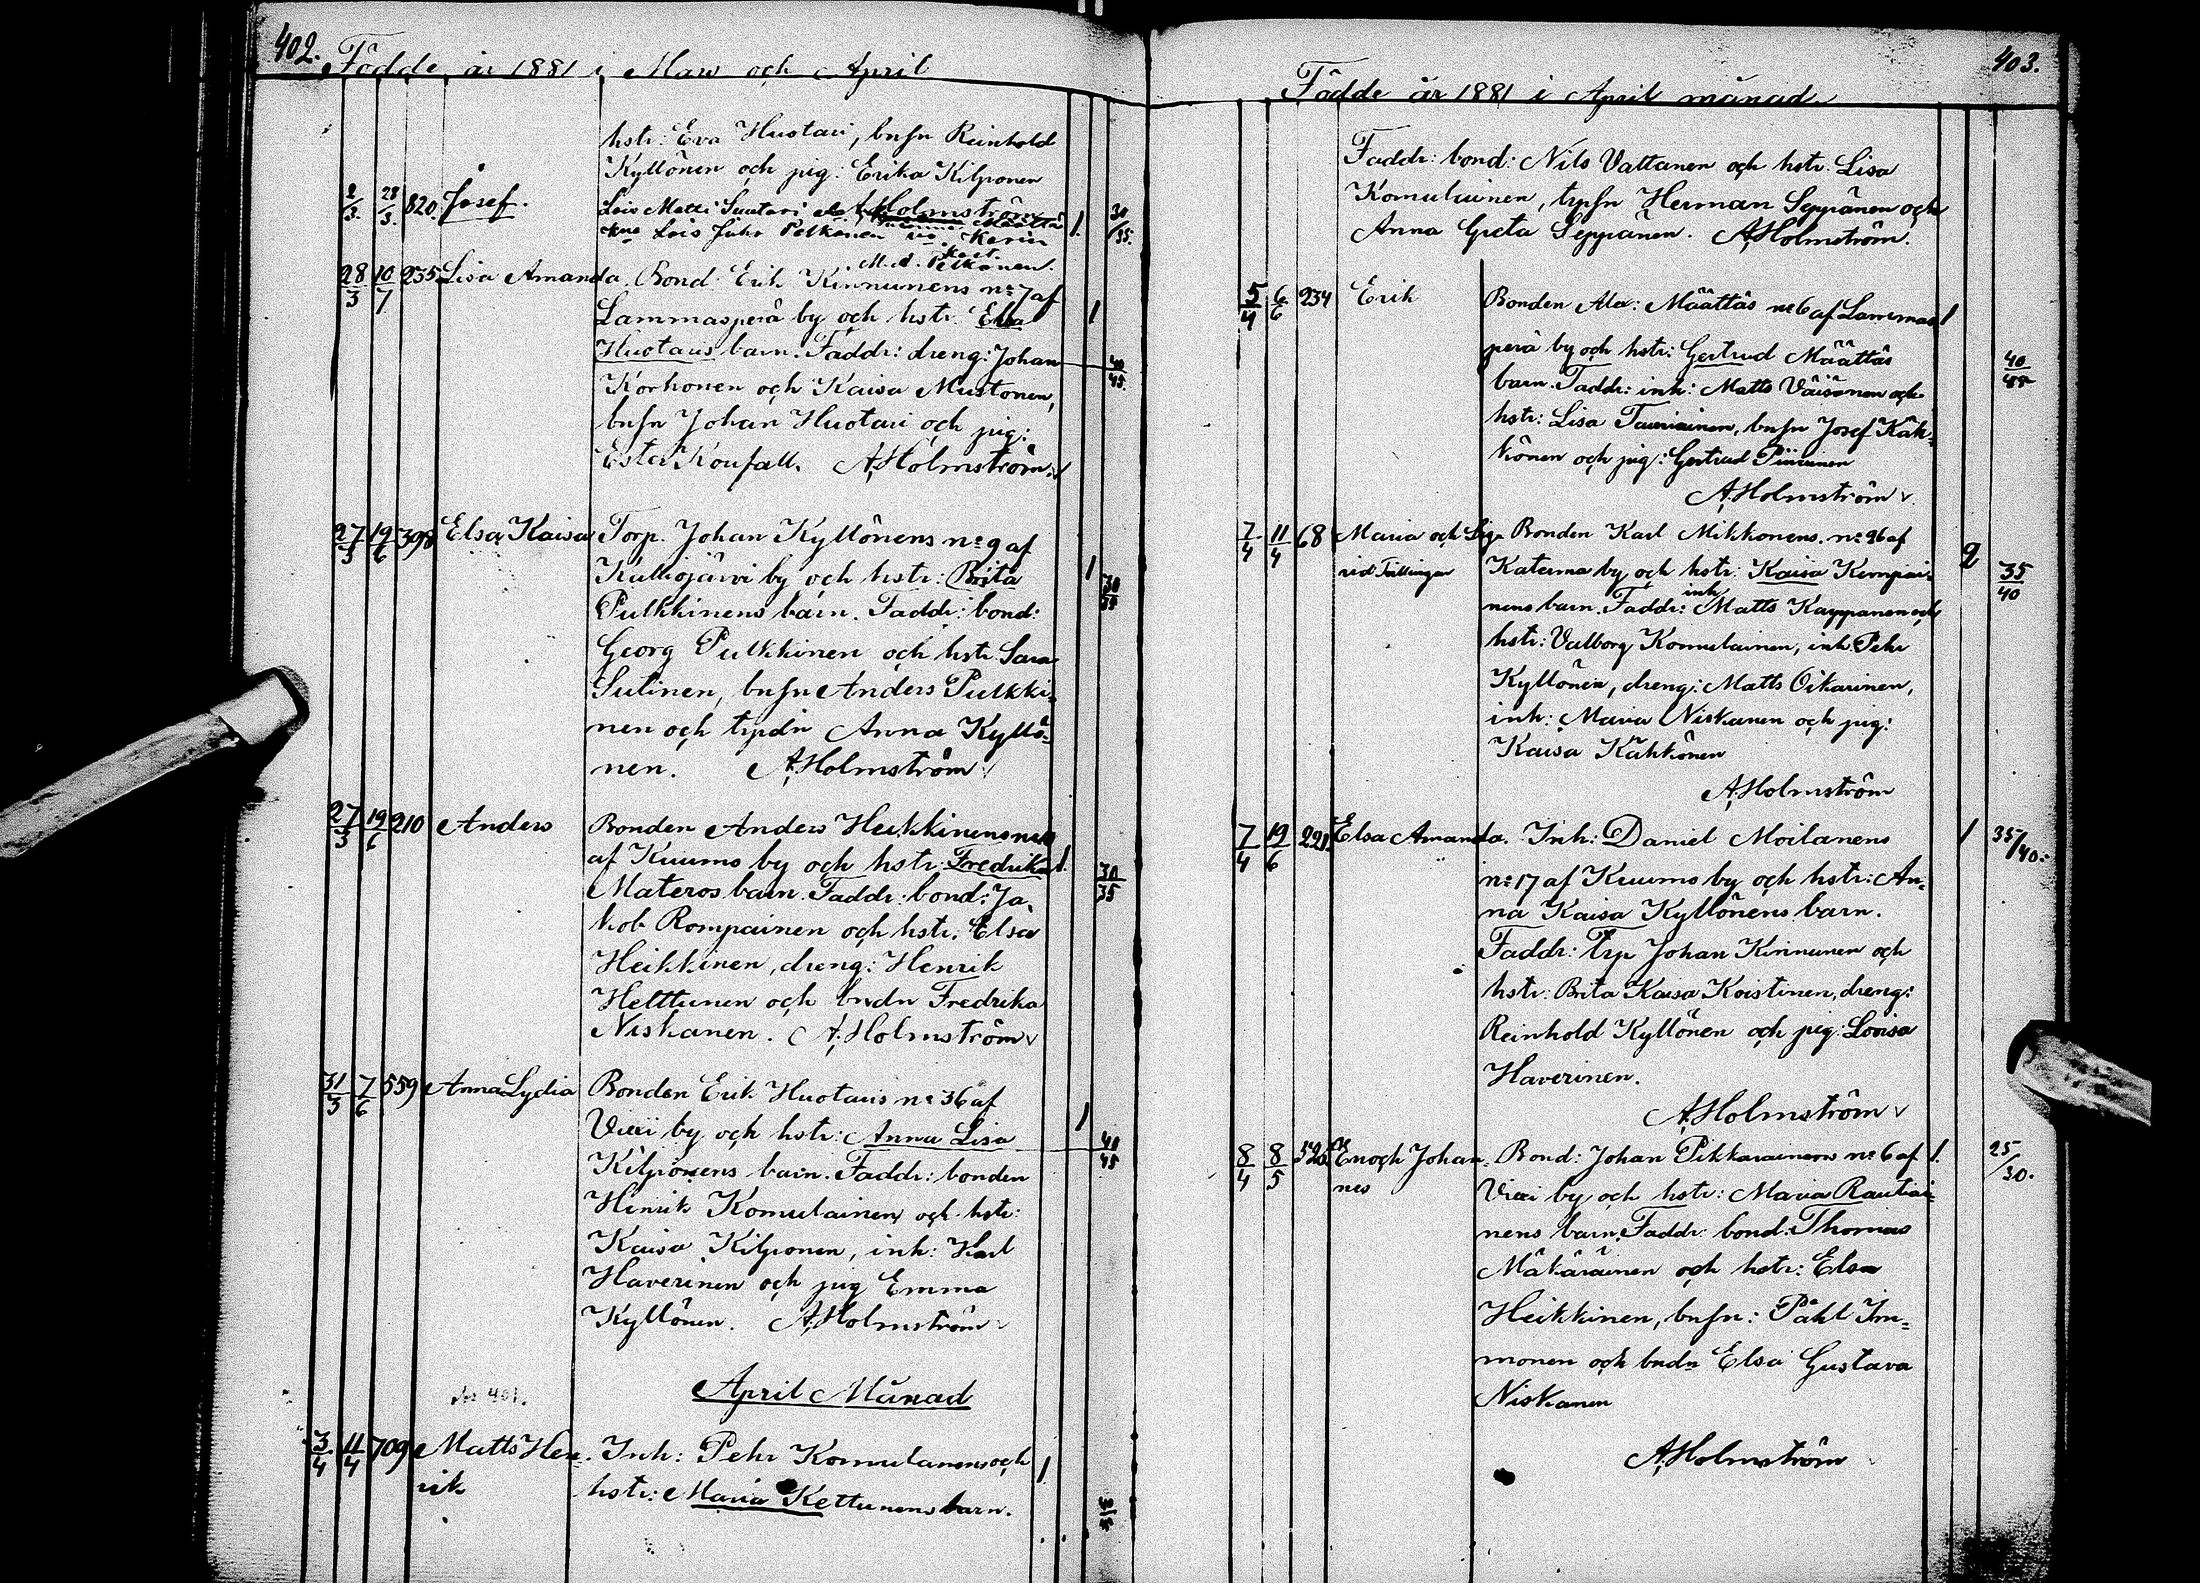 402.
Födde år 1881 i Mars och April
hstr: Eva Huotari, bnsn Reinhold
Kyllönen och pig: Erika Kilponen
2/3 28/3 820. Josef. Lois Matti Suutari A. Holmström
Lois Juho Pelkonen Karin
Pelkonen.
30/35.
28/3 10/7 235 Lisa Amanda. Bond. Erik Kinnunens nº 7 af
Lammasperä by och hstr. Elsa 1
Huotaris barn. Faddr: dreng: Johan
40/45.
Korhonen och Kaisa Mustonen,
bnsn Johan Huotari och pig:
Ester Koufall. A. Holmström.
27/3 19/6 398 Elsa Kaisa Torp. Johan Kyllönens nº 9 af
Kuhojärvi by och hstr: Brita 1
30/35
Pulkkinens barn. Faddr: bond:
Georg Pulkkinen och hstr. Sara
Sutinen, bnsn Anders Pulkki=
nen och trpdn Anna Kyllö=
nen. A. Holmström
27/3 19/6 210 Anders Bonden Anders Heikkinens
af Kuumo by och hstr: Fredrika 1.
30/35
Materos barn. Faddr: bond: Ja=
kob Rompainen och hstr. Elsa
Heikkinen, dreng: Henrik
Helttunen och bndn Fredrika
Niskanen. A. Holmström
31/3 7/6 559 Anna Lydia Bonden Erik Huotaris nº 36 af
Viexi by och hstr: Anna Lisa 1
40/45
Kilponens barn. Faddr: bonden
Hinrik Komulainen och hstr:
Kaisa Kilponen, inh: Karl
Haverinen och pig Emma
Kyllönen. A. Holmström
April Månad
3/4 11/4 709 Matts Hen= Inh: Pehr Komulainens och 1
rik hstr: Maria Kettunens barn.
40/45
403.
Födde år 1881 i April månad
Faddr: bond: Nils Vattanen och hstr. Lisa
Komulainen, trpsn Herman Seppänen och
Anna Greta Seppänen. A. Holmström.
5/4 6/6 234 Erik Bonden Alex: Määttäs nº 6 af Lammas= 1
perä by och hstr: Gertrud Määttäs
40/45
barn. Faddr: inh: Matts Väisänen och
hstr: Lisa Tauriainen, bnsn Josef Käh=
könen och pig: Gertrud Piirainen
A. Holmström
7/4 11/4 68 Maria och Lisa Bonden Karl Mikkonens nº 26 af 2
Tvillingar Katerma by och hstr: Kaisa Kempai=
35/40
nens barn. Faddr: inh Matts Kapparinen och
hstr: Valborg Komulainen, inh Pehr
Kyllönen, dreng: Matts Oikarinen,
inh: Maria Niskanen och pig:
Kaisa Kähkönen
A. Holmström
7/4 19/6 221 Elsa Amanda. Inh: Daniel Moilanens 1 35/40.
nº 17 af Kuumo by och hstr: An=
na Kaisa Kyllönens barn.
Faddr: Trp Johan Kinnunen och
hstr: Brita Kaisa Koistinen, dreng:
Reinhold Kyllönen och pig: Lovisa
Haverinen.
A. Holmström
8/4 8/5 526 Enoch Johan= Bond: Johan Pikkarainens nº 6 af 1. 25/30.
nes Viexi by och hstr: Maria Rautiai=
nens barn. Faddr: bond: Thomas
Mäkäräinen och hstr: Elsa
Heikkinen, bnsn: Påhl Im=
monen och bndn Elsa Gustava
Niskanen
A. Holmström